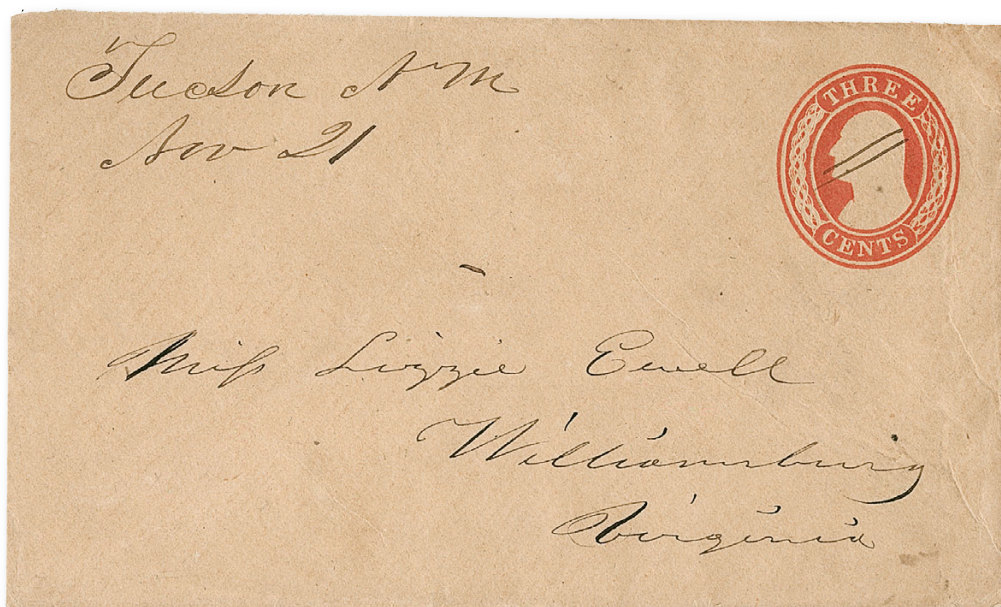 Tucson N M
Nov 21
THREE
CENTS
Miss Lizzie Ewell
Williamsburg
Virginia